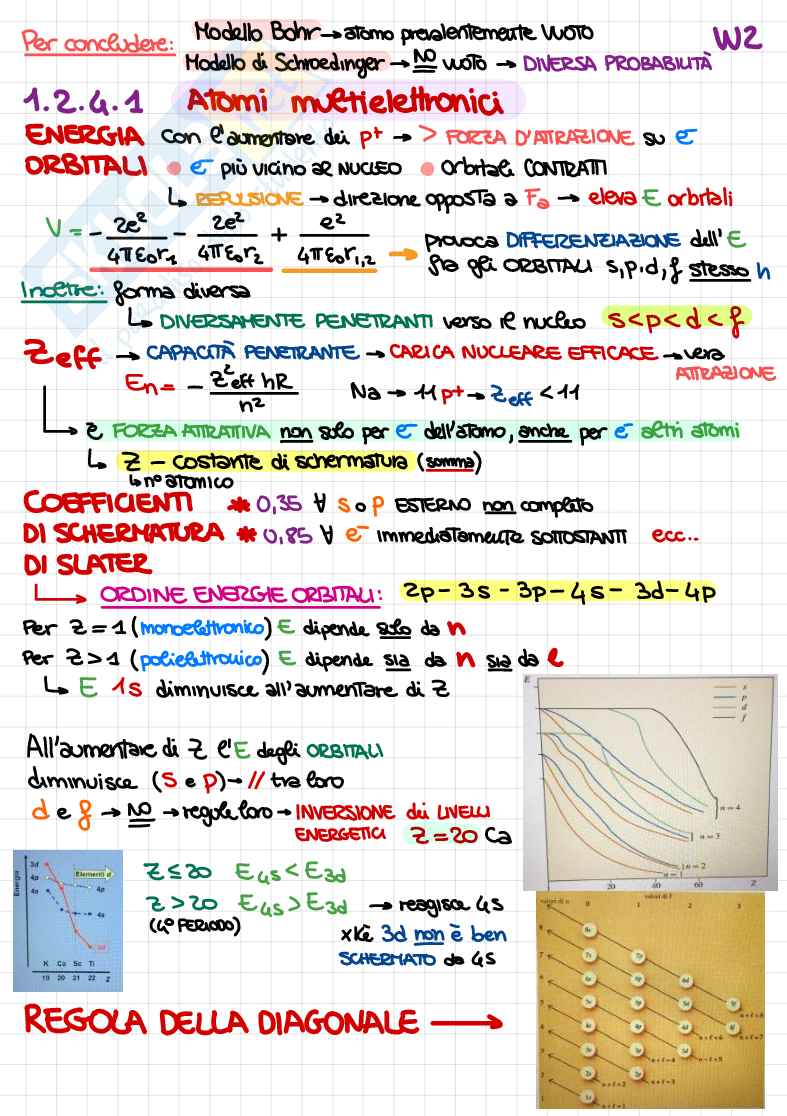 Per concludere: Modello Bohr → atomo prevalentemente VUOTO
W2
Modello di Schroedinger → NO vuoto → DIVERSA PROBABILITÀ
1.2.4.1 Atomi multielettronici
ENERGIA ORBITALI
con l'aumentare dei p+ → > FORZA D'ATTRAZIONE su e-
e- più vicino al NUCLEO
Orbitali CONTRATTI
↳ REPULSIONE → direzione opposta a Fa → eleva E orbitali
V = - 2e²/4πε0r1 - 2e²/4πε0r2 + e²/4πε0r1,2
→ provoca DIFFERENZIAZIONE dell'E
fra gli ORBITALI s,p,d,f stesso n
Inoltre: forma diversa
↳ DIVERSAMENTE PENETRANTI verso il nucleo s<p<d<f
Zeff → CAPACITÀ PENETRANTE → CARICA NUCLEARE EFFICACE → vera
ATTRAZIONE
En = - Z²eff hR/n²
Na → 11 p+ → Zeff < 11
↳ è FORZA ATTRATTIVA non solo per e- dell'atomo, anche per e- altri atomi
↳ Z - costante di schermatura (somma)
↳ n° atomico
COEFFICIENTI
DI SCHERMATURA
DI SLATER
* 0,35 ∀ s o p ESTERNO non completo
* 0,85 ∀ e- immediatamente SOTTOSTANTI ecc..
↳ ORDINE ENERGIE ORBITALI: 2p - 3s - 3p - 4s - 3d - 4p
Per Z = 1 (monoelettronico) E dipende solo da n
Per Z > 1 (polielettronico) E dipende sia da n sia da l
↳ E 1s diminuisce all'aumentare di Z
All'aumentare di Z l'E degli ORBITALI
diminuisce (s e p) → // tra loro
d e f → NO → regole loro → INVERSIONE dei LIVELLI
ENERGETICI Z = 20 Ca
E
s
p
d
f
n = 4
n = 3
n = 2
n = 1
20 40 60 Z
Energia
3d
4p
4s
Elementi d
4p
4s
3d
K Ca Sc Ti
19 20 21 22 Z
Z ≤ 20 E4s < E3d
Z > 20 E4s > E3d → reagisce 4s
(4° PERIODO)
xkè 3d non è ben
SCHERMATO da 4s
valori di n
valori di ℓ
0 1 2 3
8 8s
7 7s 7p
6 6s 6p 6d
5 5s 5p 5d 5f
4 4s 4p 4d 4f
3 3s 3p 3d
2 2s 2p
1 1s
n + ℓ = 8
n + ℓ = 7
n + ℓ = 6
n + ℓ = 5
n + ℓ = 4
n + ℓ = 3
n + ℓ = 2
n + ℓ = 1
REGOLA DELLA DIAGONALE →